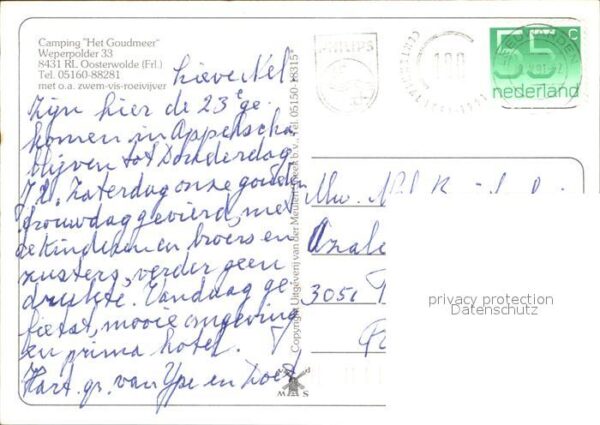 Camping "Het Goudmeer"
Weperpolder 33
8431 RL Oosterwolde (Frl.)
Tel. 05160-88281
met o.a. zwem-vis-roeivijver
Lieve Nel
Zijn hier de 23e ge-
komen in Appelscha
blijven tot Donderdag
J.l. Zaterdag onze gouden
trouwdag gevierd, met
de kinderen en broers en
zusters, verder geen
drukte. Vandaag ge-
fietst, mooie omgeving
en prima hotel.
Hart. gr. van Ype en
Copyright Uitgeverij van der Meulen Sneek b.v., Tel. 05150-18315
M S
PHILIPS
100
1991
55 c
nederland
Mw. Nel
3051
privacy protection
Datenschutz